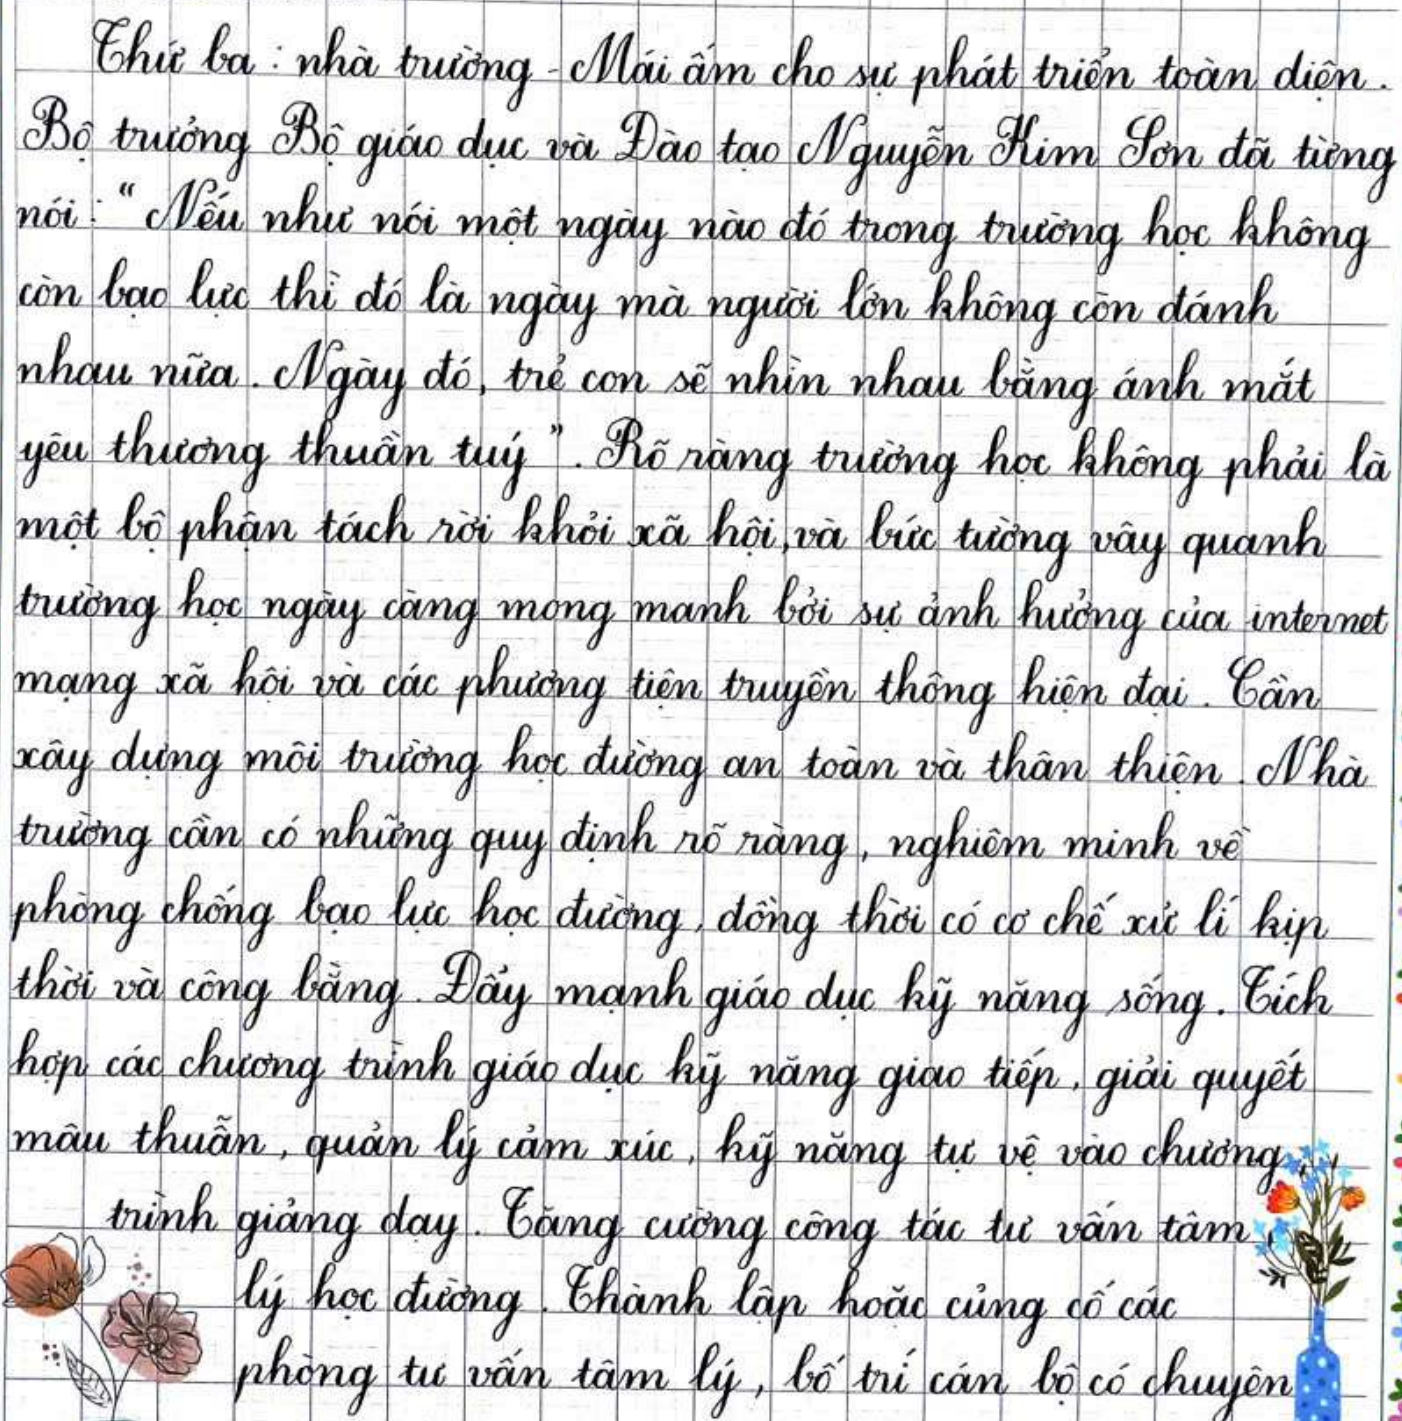 Thứ ba : nhà trường - Mái ấm cho sự phát triển toàn diện.
Bộ trưởng Bộ giáo dục và Đào tạo Nguyễn Kim Sơn đã từng
nói : “ Nếu như nói một ngày nào đó trong trường học không
còn bạo lực thì đó là ngày mà người lớn không còn đánh
nhau nữa. Ngày đó, trẻ con sẽ nhìn nhau bằng ánh mắt
yêu thương thuần tuý ”. Rõ ràng trường học không phải là
một bộ phận tách rời khỏi xã hội, và bức tường vây quanh
trường học ngày càng mong manh bởi sự ảnh hưởng của internet
mạng xã hội và các phương tiện truyền thông hiện đại. Cần
xây dựng môi trường học đường an toàn và thân thiện. Nhà
trường cần có những quy định rõ ràng, nghiêm minh về
phòng chống bạo lực học đường, đồng thời có cơ chế xử lí kịp
thời và công bằng. Đẩy mạnh giáo dục kỹ năng sống. Tích
hợp các chương trình giáo dục kỹ năng giao tiếp, giải quyết
mâu thuẫn, quản lý cảm xúc, kỹ năng tự vệ vào chương
trình giảng dạy. Tăng cường công tác tư vấn tâm
lý học đường. Thành lập hoặc củng cố các
phòng tư vấn tâm lý, bố trí cán bộ có chuyên